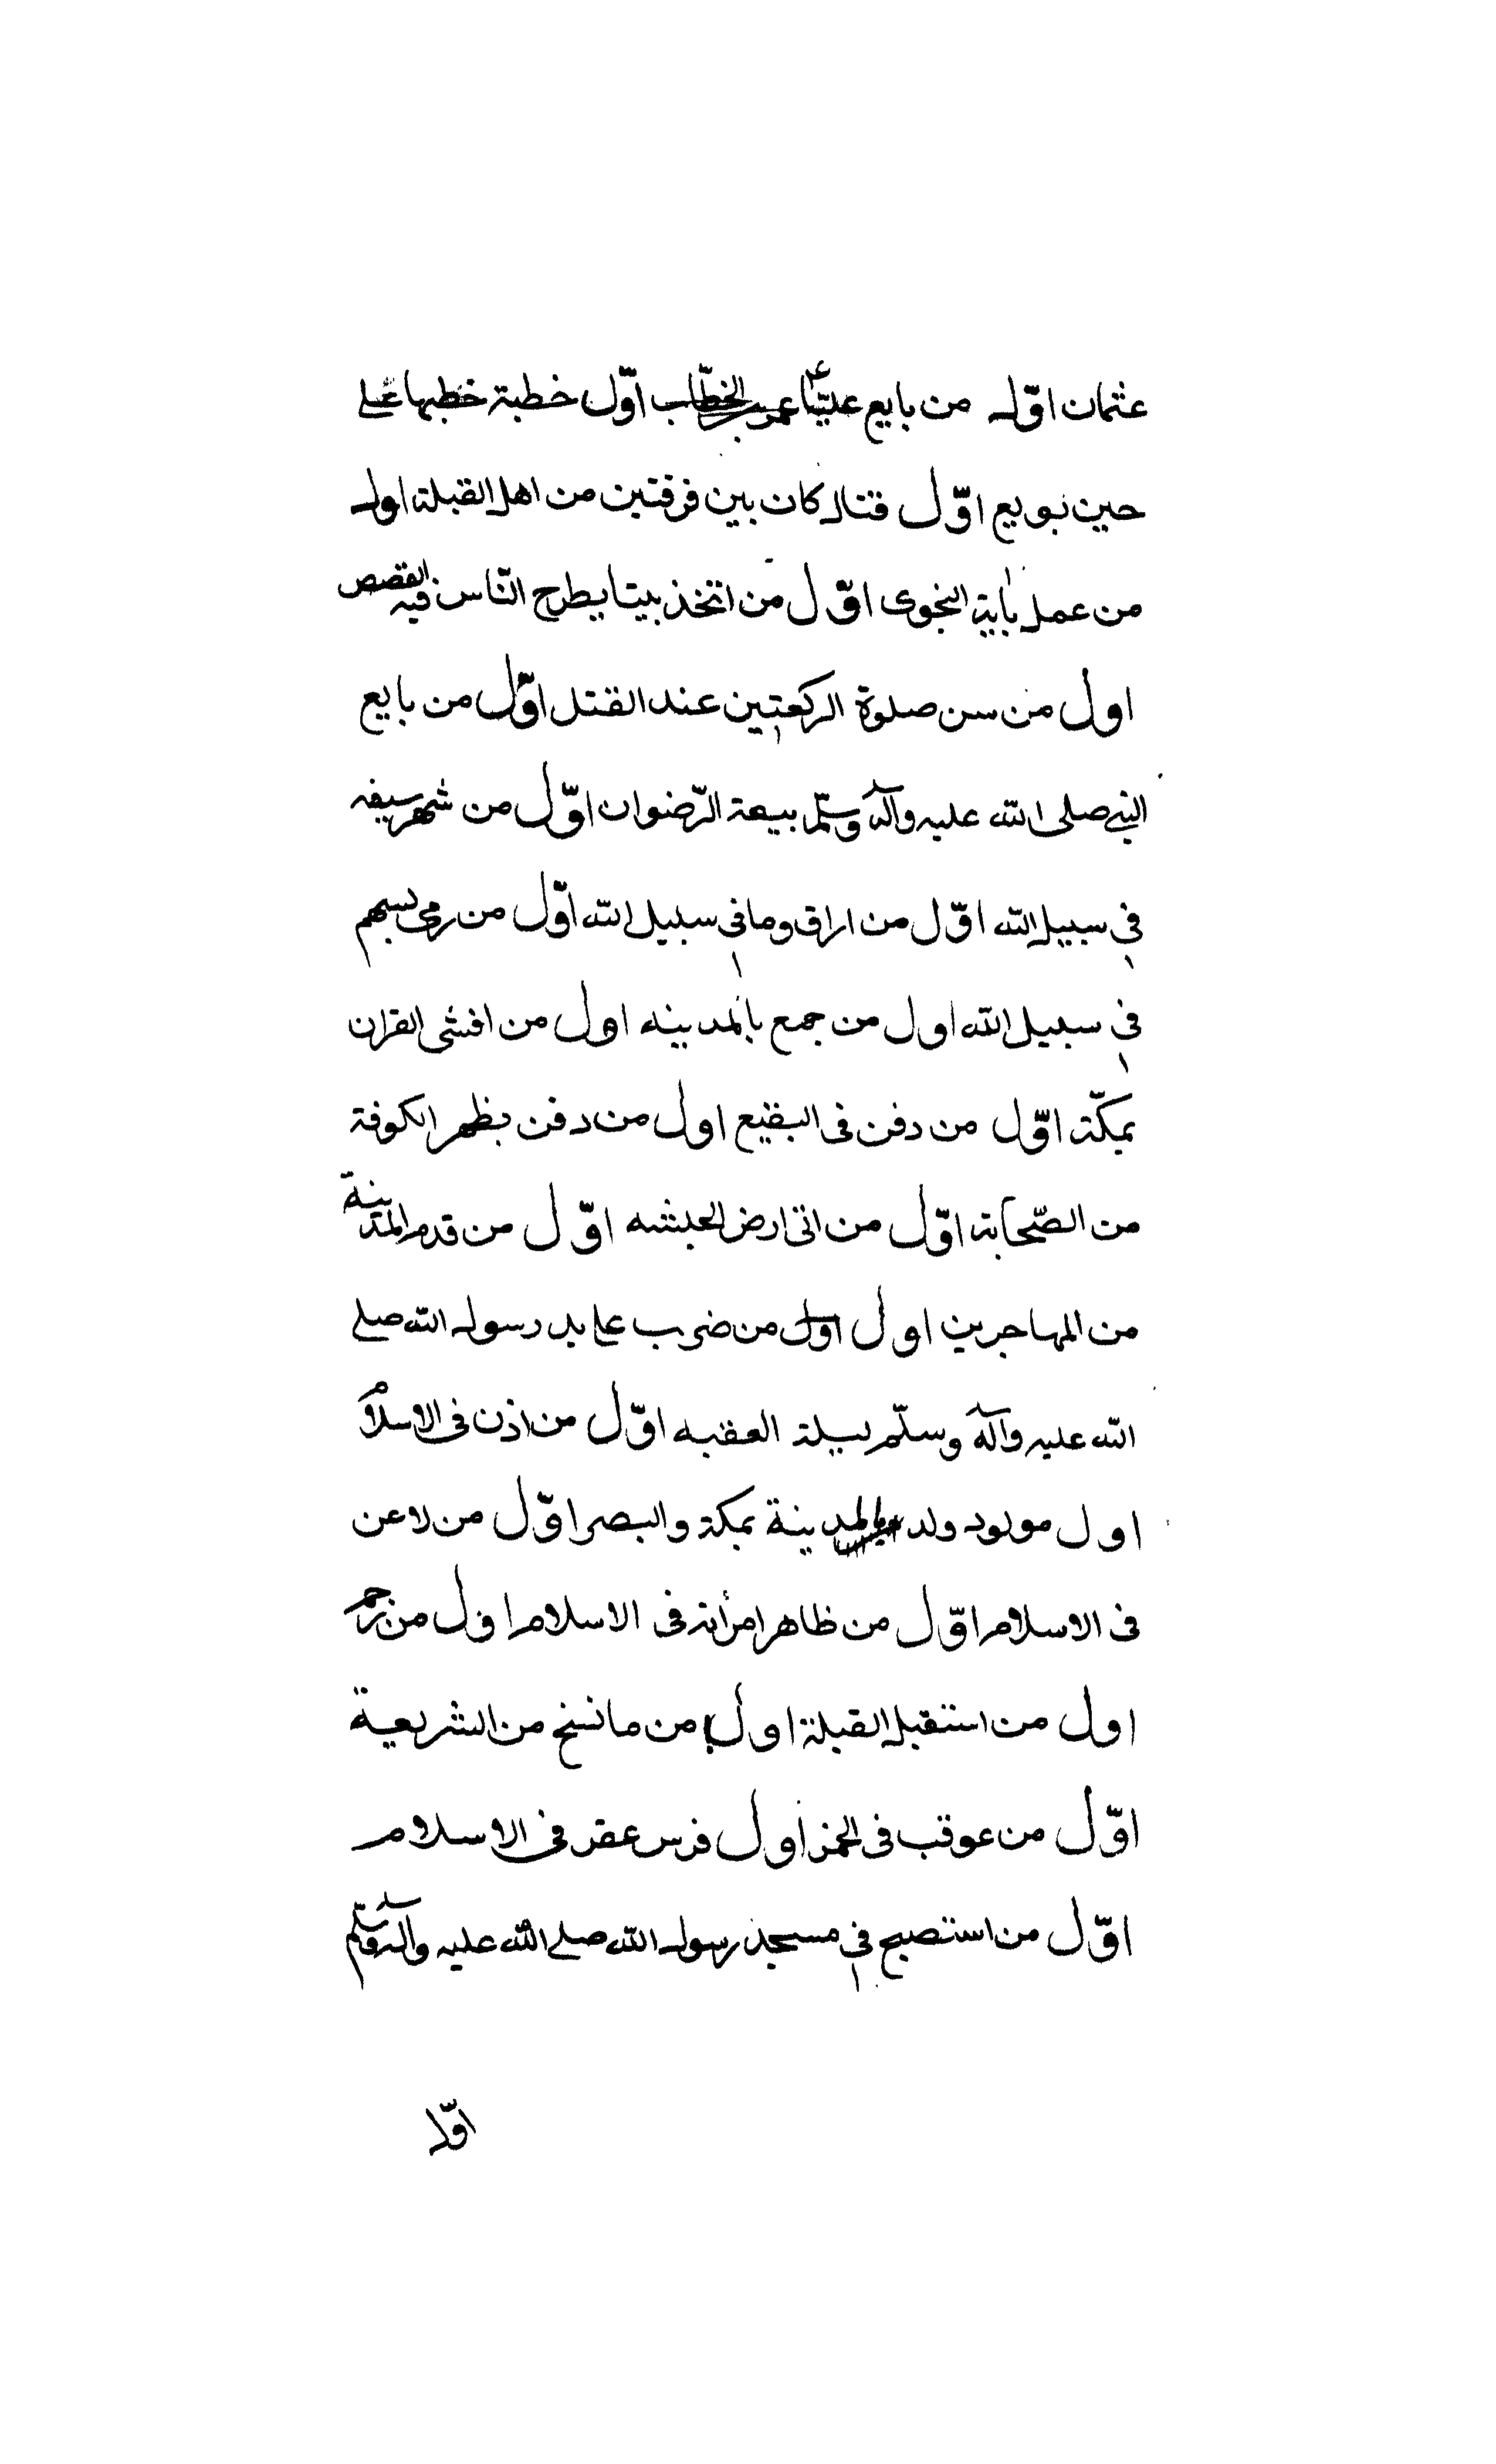 عثمان اوّل من بايع عليّا عمر بن الخطّاب اوّل خطبة خطبها علی
حين بويع اوّل قتال كان بين فرقتين من اهل القبلة اول
من عمل باية النجوى اوّل من اتخذ بيتا يطرح النّاس فيه القصص
اول من سن صلوة الركعتين عند القتل اوّل من بايع
النبی صلى الله عليه وآله وسلّم بيعة الرّضوان اوّل من شهر سيفه
فی سبيل الله اوّل من اراق دما فی سبيل الله اوّل من رمی بسهم
فی سبيل الله اول من جمع بالمدينه اول من افشی القران
بمكّة اوّل من دفن فی البقيع اول من دفن بظهر الكوفة
من الصّحابة اوّل من اتی ارض الحبشه اوّل من قدم المدينة
من المهاجرين اول اول من ضرب علی يد رسول الله صلی
الله عليه وآله وسلّم ليلة العقبه اوّل من اذن فی الاسلام
اول مولود ولد بالمدينة بمكة والبصرا اوّل من لاعن
فی الاسلام اوّل من ظاهر امرأته فی الاسلام اول من رجم
اول من استقبل القبلة اول من ما نسخ من الشريعة
اوّل من عوقب فی الخمر اول فرس عقر فی الاسلام
اوّل من استصبح فی مسجد رسول الله صلی الله عليه وآله وسلّم
اوّل